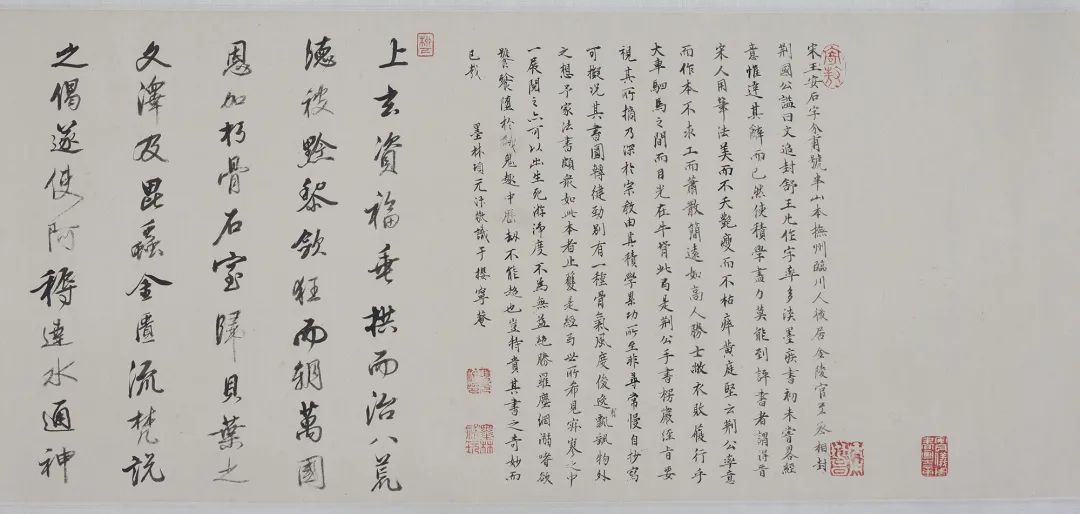 宋王安石字介甫號半山本撫州臨川人後居金陵官至丞相封
荆國公謚曰文追封舒王凡作字率多淡墨疾書初未嘗畧經
意惟達其辭而已然使積學盡力莫能到評書者謂得晋
宋人用筆法美而不夭艷瘦而不枯瘁黄庭堅云荆公率意
而作本不求工而蕭散簡遠如高人勝士敝衣敗履行乎
大車駟馬之間而目光在牛背此爲是荆公手書楞嚴經旨要
視其所摘乃深於宗教由真積學累功所至非尋常慢自抄寫
可擬况其書圓轉健勁别有一種骨氣風度俊逸飄飄有物外
之想予家法書頗最如此本者止獲是經爲世所希見寥之中
一展閱之亦可以出生死游淨度不爲無益絶勝羅塵網溺嗜欲
饕餮墮於餓鬼趣中歷劫不能超也豈特貴其書之奇妙而
已哉 墨林項元汴敬識于攖寧菴
上玄資福垂拱而治八荒
德被黔黎斂衽而朝萬國
恩加朽骨石室歸貝葉之
文澤及昆蟲金匱流梵説
之偈遂使阿耨達水通神